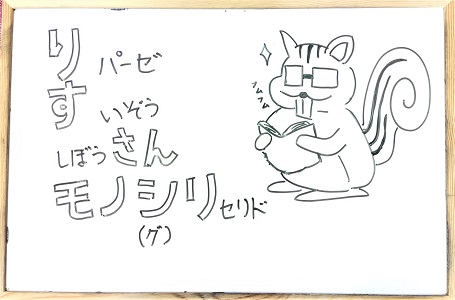 りパーゼ
すいぞう
しぼうさん
モノシリセリド
(グ)
フムフム